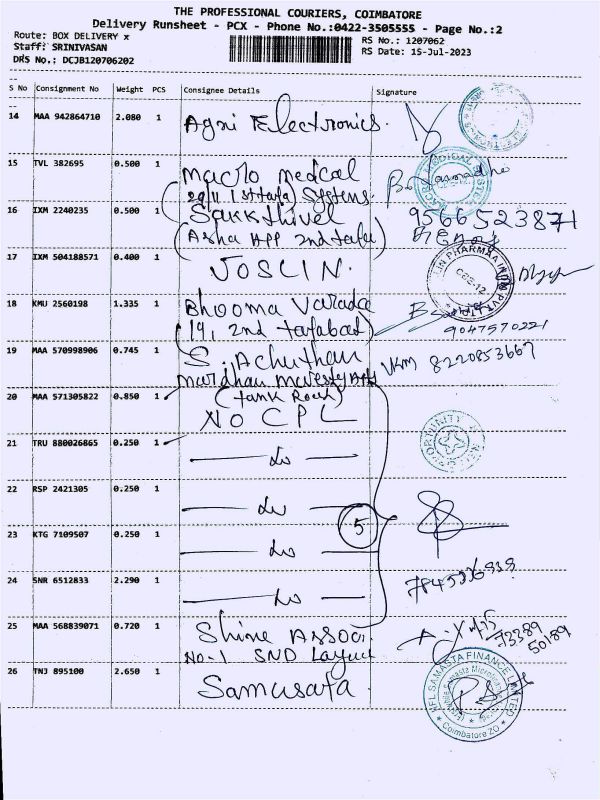 THE PROFESSIONAL COURIERS, COIMBATORE
Delivery Runsheet - PCX - Phone No.:0422-3505555 - Page No.:2
Route: BOX DELIVERY x
RS No.: 1207062
Staff: SRINIVASAN
RS Date: 15-Jul-2023
DRS No.: DCJB120706202
S No Consignment No Weight PCS Consignee Details Signature
14 MAA 942864710 2.080 1 Agni Electronics.
15 TVL 382695 0.500 1 Macro Medcal
Systems.
16 IXM 2240235 0.500 1 Sakkthivel 9566523871
(Asha APP 2nd
17 IXM 504188571 0.400 1 JOSLIN.
18 KMU 2560198 1.335 1 Bhooma Varada
(19, 2nd tatabad) 9047570221
19 MAA 570998906 0.745 1 S. Achuthan VKM 8220853667
(tank Road)
20 MAA 571305822 0.850 1 NO CPL
21 TRU 880026865 0.250 1 do
22 RSP 2421305 0.250 1 do
5
23 KTG 7109507 0.250 1 do
24 SNR 6512833 2.290 1 do
25 MAA 568839071 0.720 1 Shine Assoc. 73389
NO-1 SND Layout 50189
26 TNJ 895100 2.650 1 Samusata
SAMASTA FINANCE LIMITED
Coimbatore ZO